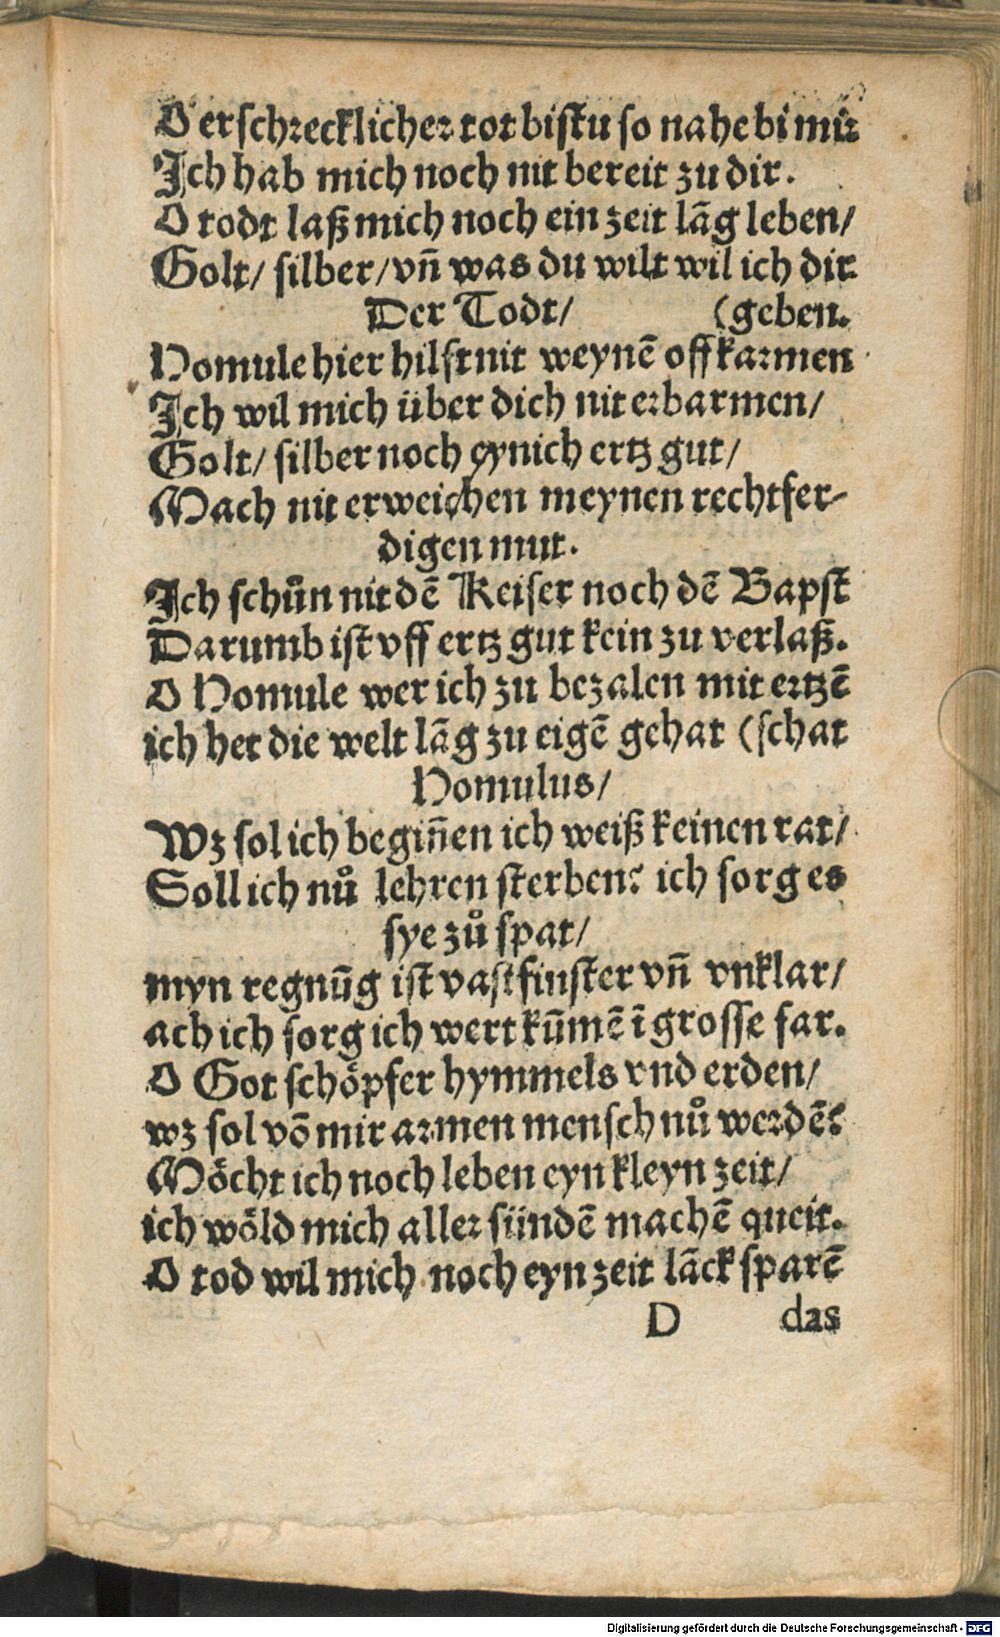 O erschrecklicher tot bistu so nahe bi mir
Ich hab mich noch nit bereit zu dir.
O todt laß mich noch ein zeit lãg leben/
Golt/ silber/ vñ was du wilt wil ich dir
Der Todt/ (geben.
Homule hier hilft nit weynẽ off karmen
Ich wil mich über dich nit erbarmen/
Golt/ silber noch eynich ertz gut/
Mach nit erweichen meynen rechtfer-
digen mut.
Ich schün nit dẽ Keiser noch dẽ Bapst
Darumb ist vff ertz gut kein zu verlaß.
O Homule wer ich zu bezalen mit ertzẽ
ich het die welt lãg zu eigẽ gehat (schat
Homulus/
Wz sol ich begiñen ich weiß keinen rat/
Soll ich nů lehren sterben? ich sorg es
sye zů spat/
myn regnũg ist vast finster vñ vnklar/
ach ich sorg ich wert kũmẽ ĩ grosse far.
O Got schöpfer hymmels vnd erden/
wz sol võ mir armen mensch nů werdẽ?
Möcht ich noch leben eyn kleyn zeit/
ich wöld mich aller sündẽ machẽ queit.
O tod wil mich noch eyn zeit lãck sparẽ
D das
Digitalisierung gefördert durch die Deutsche Forschungsgemeinschaft - DFG